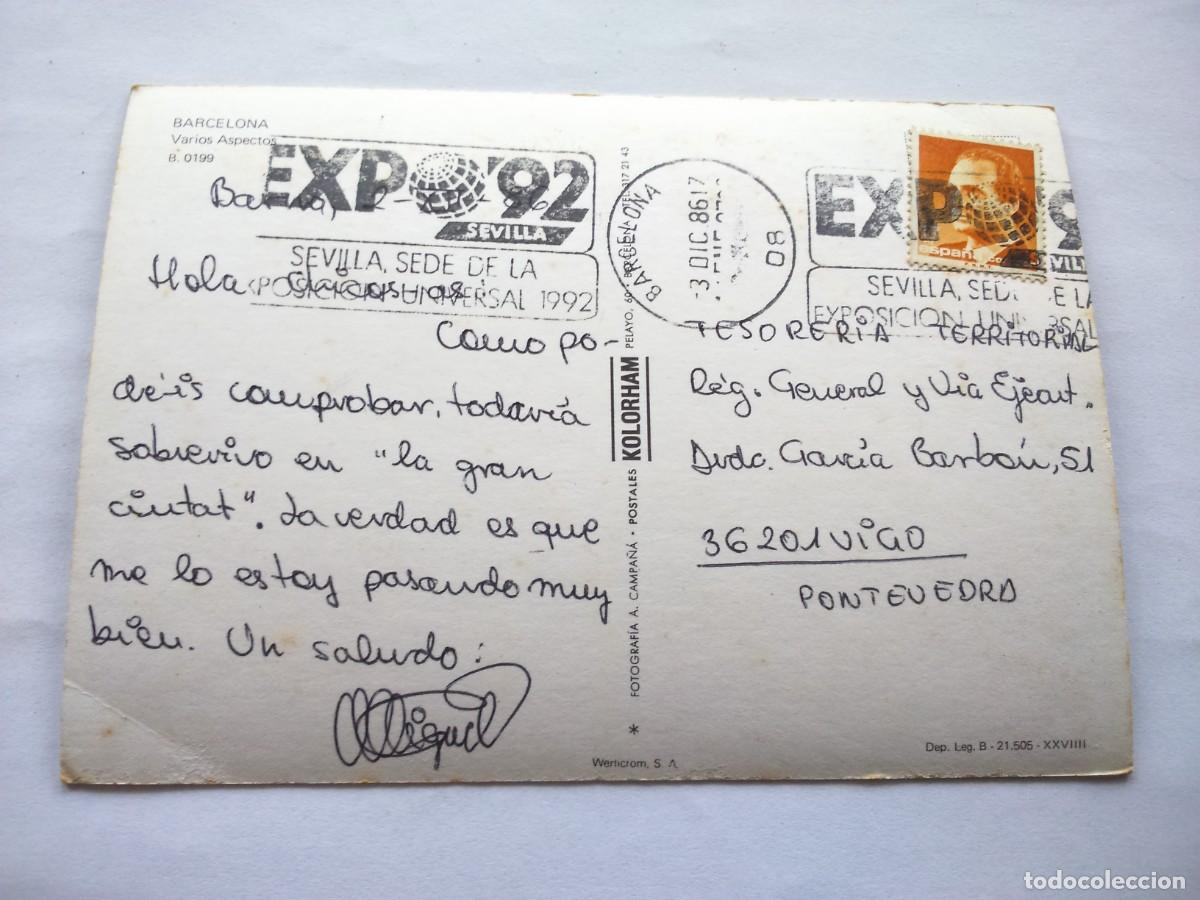 BARCELONA
Varios Aspectos
B. 0199
EXPO '92
SEVILLA
SEVILLA, SEDE DE LA
EXPOSICION UNIVERSAL 1992
Hola
Como po-
déis comprobar, todavía
sobrevivo en "la gran
ciutat". La verdad es que
me lo estoy pasando muy
bien. Un saludo:
Miguel
FOTOGRAFÍA A. CAMPAÑÁ • POSTALES KOLORHAM PELAYO, 60 • BARCELONA
*
Werticrom, S. A.
BARCELONA
-3 DIC. 86 17
08
EXPO '9
SEVILL
SEVILLA, SEDE DE LA
EXPOSICION UNIVERSAL
españa
TESORERIA TERRITORIAL
Rég. General y Vía Ejecut.
Avda. García Barbón, 51
36201 VIGO
PONTEVEDRA
Dep. Leg. B - 21.505 - XXVIIII
todocoleccion